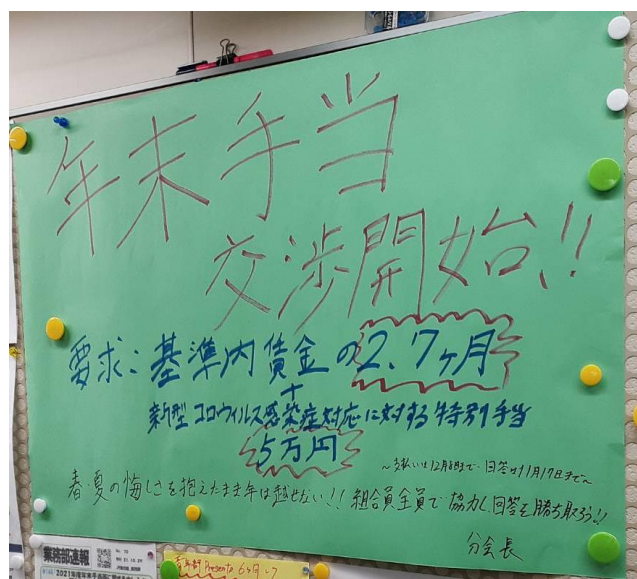 年末手当
交渉開始!!
要求:基準内賃金の2.7ヶ月
+
新型コロウィルス感染症対応に対する特別手当
5万円
~支払いは12月8日まで 回答は11月17日まで~
春・夏の悔しさを抱えたまま年は越せない!!組合員全員で協力し、回答を勝ち取ろう!!
分会長
業務部速報